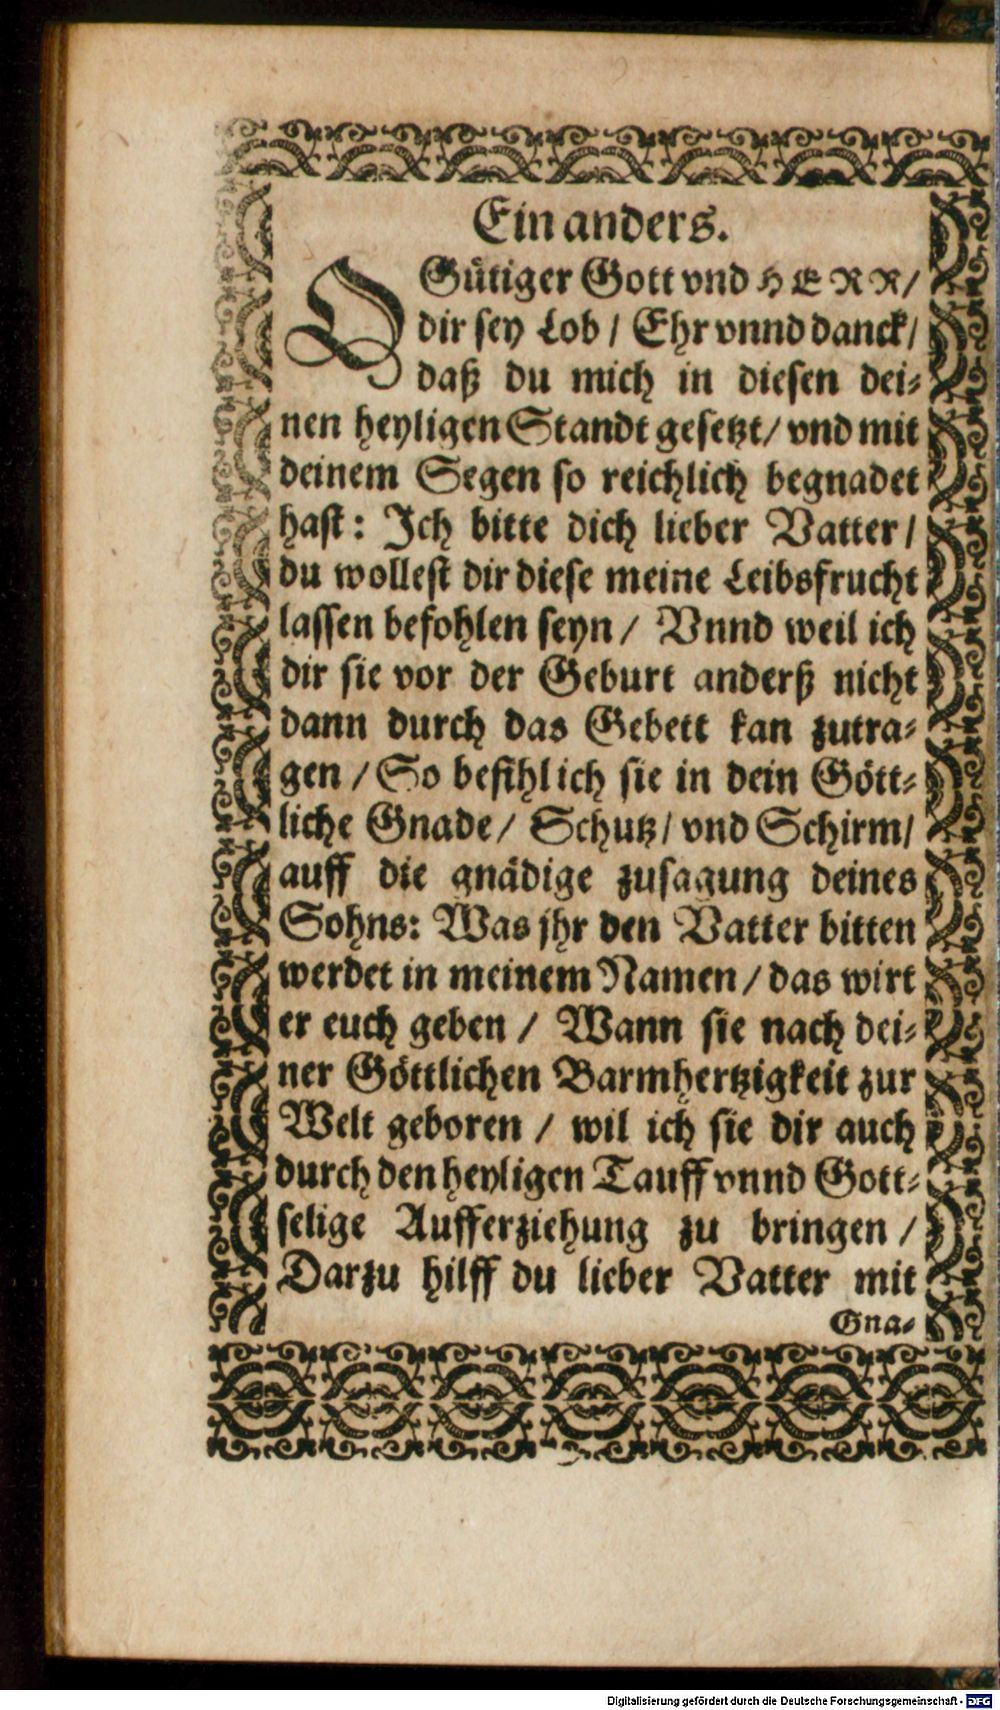 Ein anders.
O Gütiger Gott vnd HERR/
dir sey Lob / Ehr vnnd danck/
daß du mich in diesen dei-
nen heyligen Standt gesetzt/ vnd mit
deinem Segen so reichlich begnadet
hast: Ich bitte dich lieber Vatter/
du wollest dir diese meine Leibsfrucht
lassen befohlen seyn / Vnnd weil ich
dir sie vor der Geburt anderß nicht
dann durch das Gebett kan zutra-
gen / So befihl ich sie in dein Gött-
liche Gnade/ Schutz/ vnd Schirm/
auff die gnädige zusagung deines
Sohns: Was jhr den Vatter bitten
werdet in meinem Namen / das wirt
er euch geben / Wann sie nach dei-
ner Göttlichen Barmhertzigkeit zur
Welt geboren / wil ich sie dir auch
durch den heyligen Tauff vnnd Gott-
selige Aufferziehung zu bringen /
Darzu hilff du lieber Vatter mit
Gna-
Digitalisierung gefördert durch die Deutsche Forschungsgemeinschaft - DFG